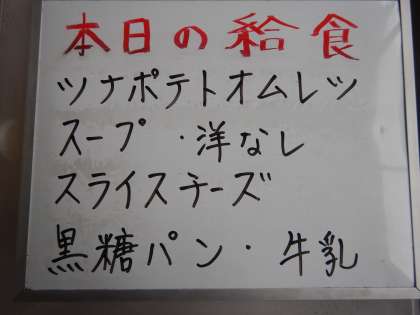 本日の給食
ツナポテトオムレツ
スープ・洋なし
スライスチーズ
黒糖パン・牛乳